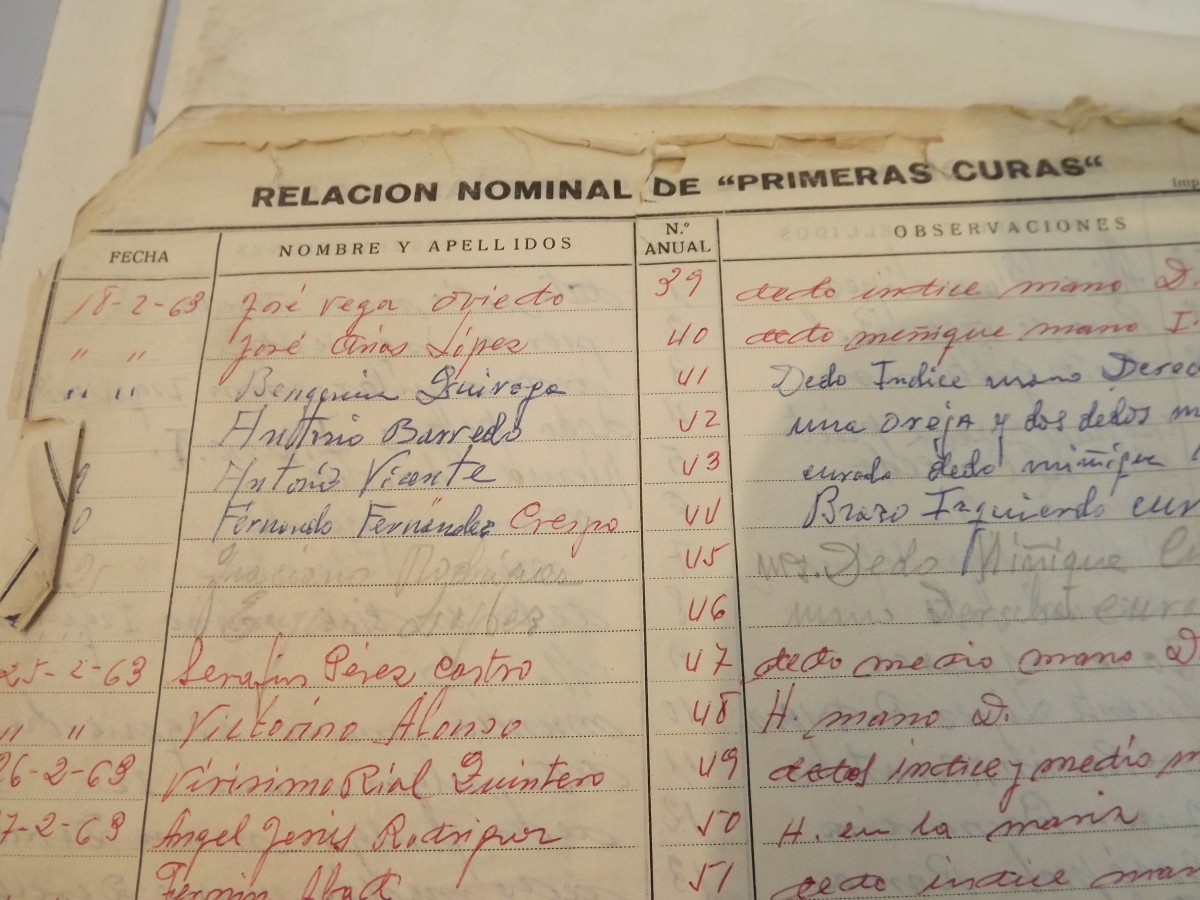 RELACION NOMINAL DE "PRIMERAS CURAS"
FECHA NOMBRE Y APELLIDOS N.º ANUAL OBSERVACIONES
18-2-63 José Vega Oviedo 39 dedo indice mano D.
" " José López 40 dedo meñique mano I.
" " Quiroga 41 Dedo Indice mano Derec
Antonio Barredo 42 una oreja y dos dedos m
Antonio Vicente 43 curado dedo
Fernando Fernández Crespo 44 Brazo Izquierdo cur
45 Dedo Miñique
46 mano
25-2-63 Serafín Pérez Castro 47 dedo medio mano D
" " Victorino Alonso 48 H. mano D.
26-2-63 Virisimo Rial Quintero 49 dedos indice y medio m
7-2-63 Angel Jesús Rodriguez 50 H. en la
Fermin 51 dedo indice man